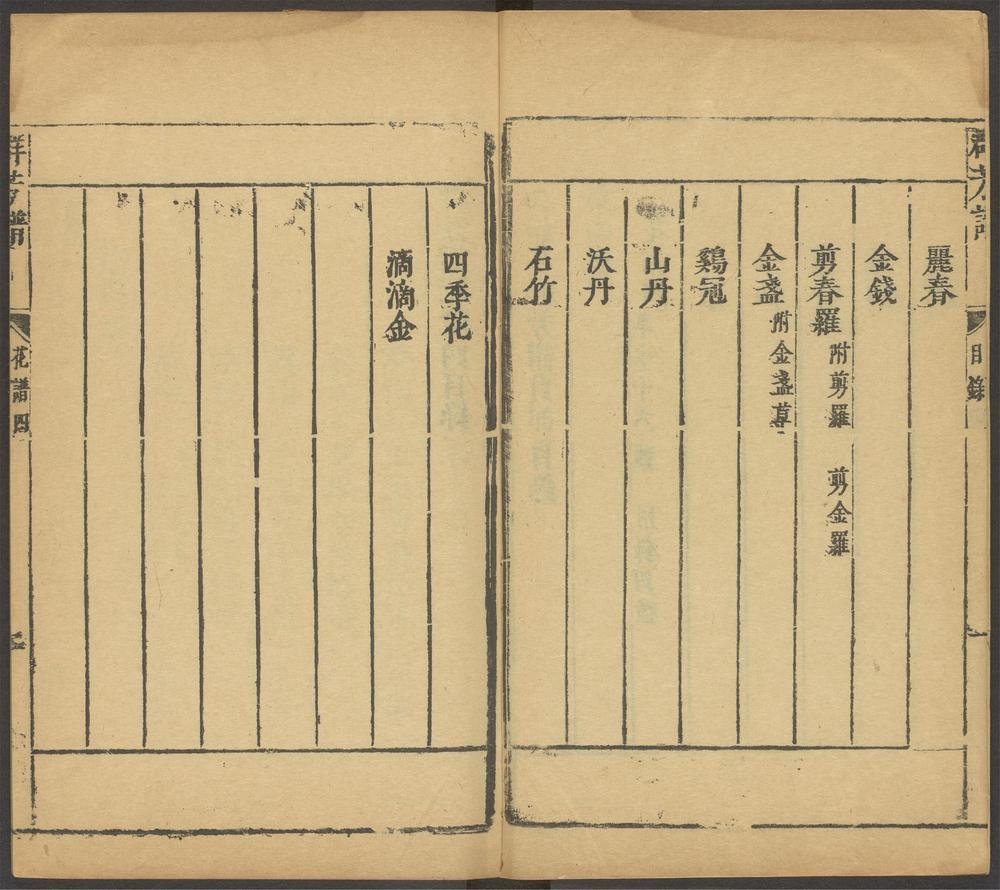 群芳譜 目錄
麗春
金錢
剪春羅 附剪羅 剪金羅
金盞 附金盞草
鷄冠
山丹
沃丹
石竹
四季花
滴滴金
群芳譜 花譜四